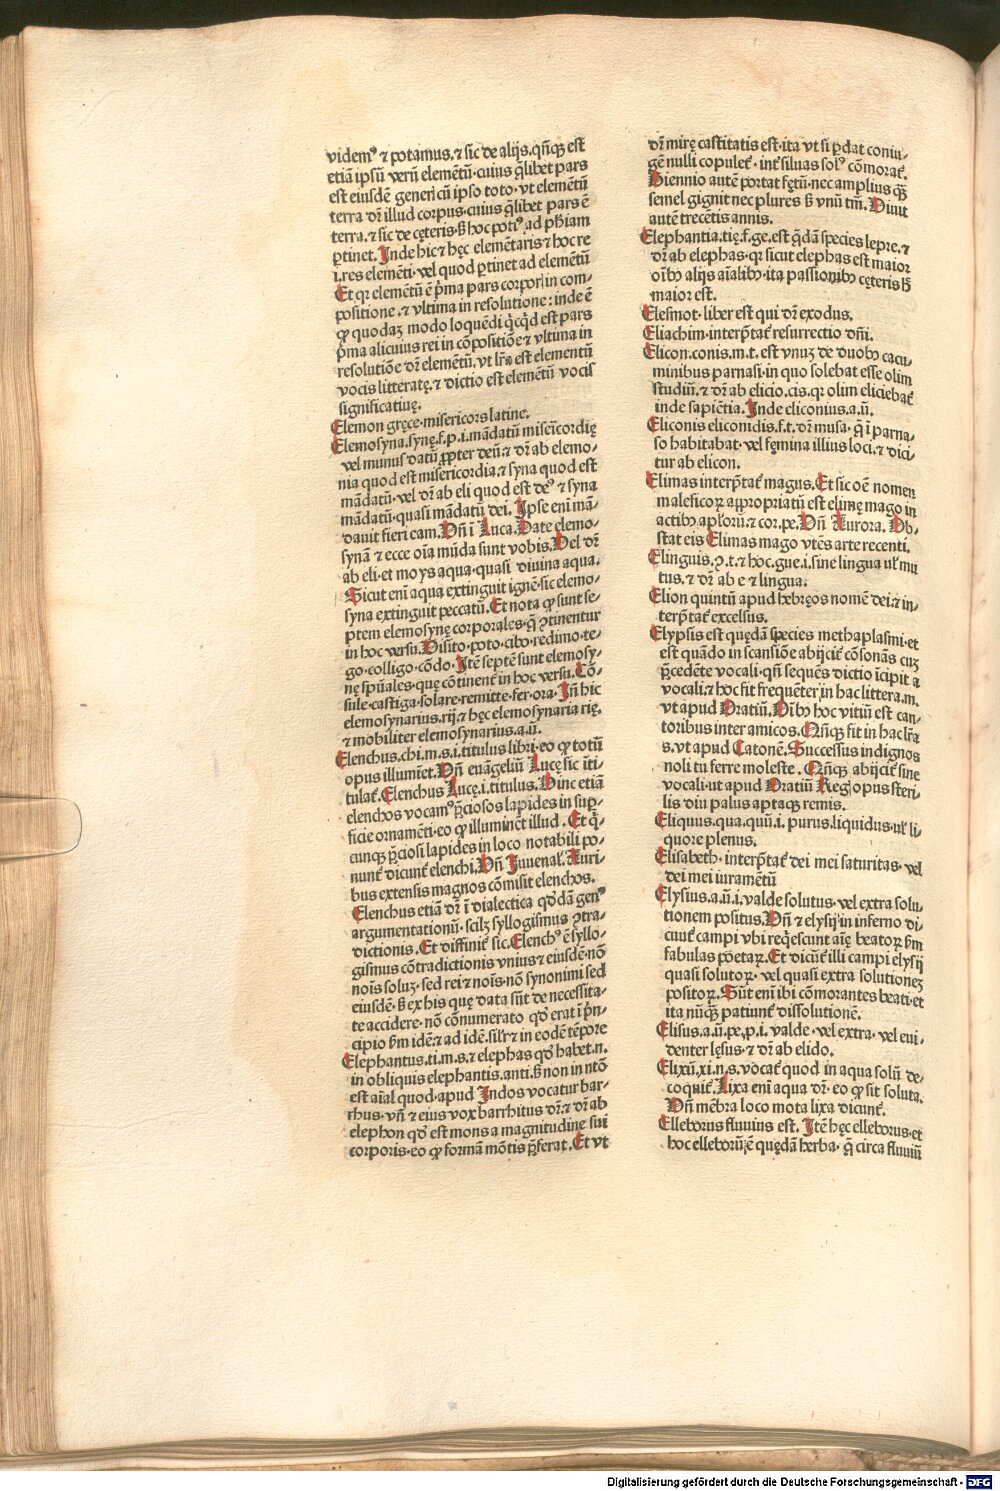 videmꝰ ⁊ potamus.⁊ sic de alijs.qñqꝫ est
etiã ipsũ verũ elemẽtũ.cuius q̃libet pars
est eiusdẽ generi cũ ipso toto.vt elemẽtũ
terra dr̃ illud corpus.cuius q̃libet pars ẽ
terra.⁊ sic de cęteris.s̃ hoc potiꝰ ad phiam
ꝑtinet. Inde hic ⁊ hęc elemẽtaris ⁊ hoc re
i.res elemẽti.vel quod ꝑtinet ad elemẽtũ
Et qr elemẽtũ ẽ pꝛ̃ma pars corpori in com-
positione.⁊ vltima in resolutione: inde ẽ
ꝙ quodaꝫ modo loquẽdi q̇cq̇d est pars
pꝛ̃ma alicuius rei in cõpositiõe ⁊ vltima in
resolutiõe dr̃ elemẽtũ. vt lr̃a est elementũ
vocis litteratę.⁊ dictio est elemẽtũ vocis
significatiuę.
Elemon gręce.misericors latine.
Elemosyna.synę.f.p.i.mãdatũ misericordię
vel munus datũ ꝓpter deũ.⁊ dr̃ ab elemo-
nia quod est misericordia.⁊ syna quod est
mãdatũ.vel dr̃ ab eli quod est deꝰ ⁊ syna
mãdatũ.quasi mãdatũ dei. Ipse eni mã-
dauit fieri eam. Vñ ĩ Luca. Date elemo-
synã ⁊ ecce oĩa mũda sunt vobis. Vel dr̃
ab eli.et moys aqua.quasi diuina aqua.
Sicut eni aqua extinguit ignẽ.sic elemo-
syna extinguit peccatũ. Et nota ꝙ sunt se-
ptem elemosynę corporales.q̃ ꝯtinentur
in hoc versu. Visito.poto.cibo.redimo.te-
go.colligo.cõdo. Itẽ septẽ sunt elemosy-
nę spũales.quę cõtinent̃ in hoc versu. Cõ-
sule.castiga.solare.remitte.fer.ora. Iñ hic
elemosynarius.rij.⁊ hęc elemosynaria rię.
⁊ mobiliter elemosynarius.a.ũ.
Elenchus.chi.m.s.i.titulus libri.eo ꝙ totũ
opus illumiet. Vñ euãgeliũ Lucę sic iti-
tulat̃. Elenchus Lucę.i.titulus. Hinc etiã
elenchos vocamꝰ p̃ciosos lapides in suꝑ-
ficie ornamẽti.eo ꝙ illuminẽt illud. Et q̃-
cunqꝫ p̃ciosi lapides in loco notabili po-
nunt̃ dicunt̃ elenchi. Vñ Iuuenal̃. Auri-
bus extensis magnos cõmisit elenchos.
Elenchus etiã dr̃ ĩ dialectica qd̃dã genꝰ
argumentationũ.scilꝫ syllogismus ꝯtra-
dictionis. Et diffinit̃ sic. Elenchꝰ ẽ syllo-
gismus cõtradictionis vnius ⁊ eiusdẽ.nõ
nois soluꝫ.sed rei ⁊ nois.nõ synonimi sed
eiusdẽ.s̃ ex his quę data sũt de necessita-
te accidere.nõ cõnumerato qd̃ erat ĩ pꝛ̃n-
cipio s̃m idẽ.⁊ ad idẽ.silr̃ ⁊ in eodẽ tẽpore
Elephantus.ti.m.s.⁊ elephas qd̃ habet.n.
in obliquis elephantis.anti.s̃ non in ntõ
est aial quod apud Indos vocatur bar-
rhus.vñ ⁊ eius vox barrhitus dr̃.⁊ dr̃ ab
elephon qd̃ est mons a magnitudine sui
corporis.eo ꝙ formã mõtis p̃ferat. Et vt
dr̃ mirę castitatis est.ita vt si ꝑdat coniu-
gẽ nulli copulet̃. int̃ siluas solꝰ cõmorat̃.
Biennio autẽ portat fętũ.nec amplius qꝫ̃
semel gignit nec plures s̃ vnũ tm̃. Viuit
autẽ trecẽtis annis.
Elephantia.tię.f.ge.est q̃dã species lepre.⁊
dr̃ ab elephas.qr sicut elephas est maior
oĩbꝫ alijs aialibꝫ.ita passionibꝫ cęteris hꝫ
maior est.
Elesmot.liber est qui dr̃ exodus.
Eliachim.interp̃tat̃ resurrectio dñi.
Elicon.conis.m.t.est vnuꝫ de duobꝫ cacu-
minibus parnasi.in quo solebat esse olim
studiũ.⁊ dr̃ ab elicio.cis.qr olim eliciebat̃
inde sapiẽtia. Inde eliconius.a.ũ.
Eliconis eliconidis.f.t.dr̃ musa.q̃ ĩ parna-
so habitabat.vel fęmina illius loci.⁊ dici-
tur ab elicon.
Elimas interp̃tat̃ magus. Et sic oẽ nomen
maleficoꝝ appropriatũ est elimę mago in
actibꝫ aploruꝫ.⁊ cor.pe. Vñ Aurora. Ob-
stat eis Elimas mago vtẽs arte recenti.
Elinguis.ꝯ.t.⁊ hoc.gue.i.sine lingua ul̃ mu
tus.⁊ dr̃ ab e ⁊ lingua.
Elion quintũ apud hebręos nomẽ dei.⁊ in-
terp̃tat̃ excelsus.
Elypsis est quędã species methaplasmi.et
est quãdo in scansiõe abijcit̃ cõsonãs cuꝫ
p̃cedẽte vocali.qñ sequẽs dictio icipit a
vocali.⁊ hoc fit frequẽter in hac littera.m.
vt apud Oratiũ. Oĩbꝫ hoc vitiũ est can-
toribus inter amicos. Qñqꝫ fit in hac lr̃a
s.vt apud Catonẽ. Successus indignos
noli tu ferre moleste. Qñqꝫ abijcit̃ sine
vocali.ut apud Oratiũ Regis opus steri-
lis diu palus aptaqꝫ remis.
Eliquus.qua.quũ.i.purus.liquidus.ul̃ li-
quore plenus.
Elisabeth.interp̃tat̃ dei mei saturitas.vel
dei mei iuramẽtũ
Elysius.a.ũ.i.valde solutus.vel extra solu-
tionem positus. Vñ ⁊ elysij in inferno di-
cunt̃ campi vbi req̇escunt aię beatoꝝ s̃m
fabulas poetaꝝ. Et dicũt̃ illi campi elysij
quasi solutoꝝ.vel quasi extra solutioneꝫ
positoꝝ. Sũt eni ibi cõmorantes beati.et
ita nũqꝫ̃ patiunt̃ dissolutionẽ.
Elisus.a.ũ.pe.p.i.valde.vel extra.vel eui-
denter lęsus.⁊ dr̃ ab elido.
Elixũ.xi.n.s.vocat̃ quod in aqua solũ de-
coquit̃. Lixa eni aqua dr̃.eo ꝙ sit soluta.
Vñ mẽbra loco mota lixa dicunt̃.
Elleborus fluuius est. Itẽ hęc elleborus.et
hoc elleborũ.ẽ quędã herba.q̃ circa fluuiũ
Digitalisierung gefördert durch die Deutsche Forschungsgemeinschaft - DFG